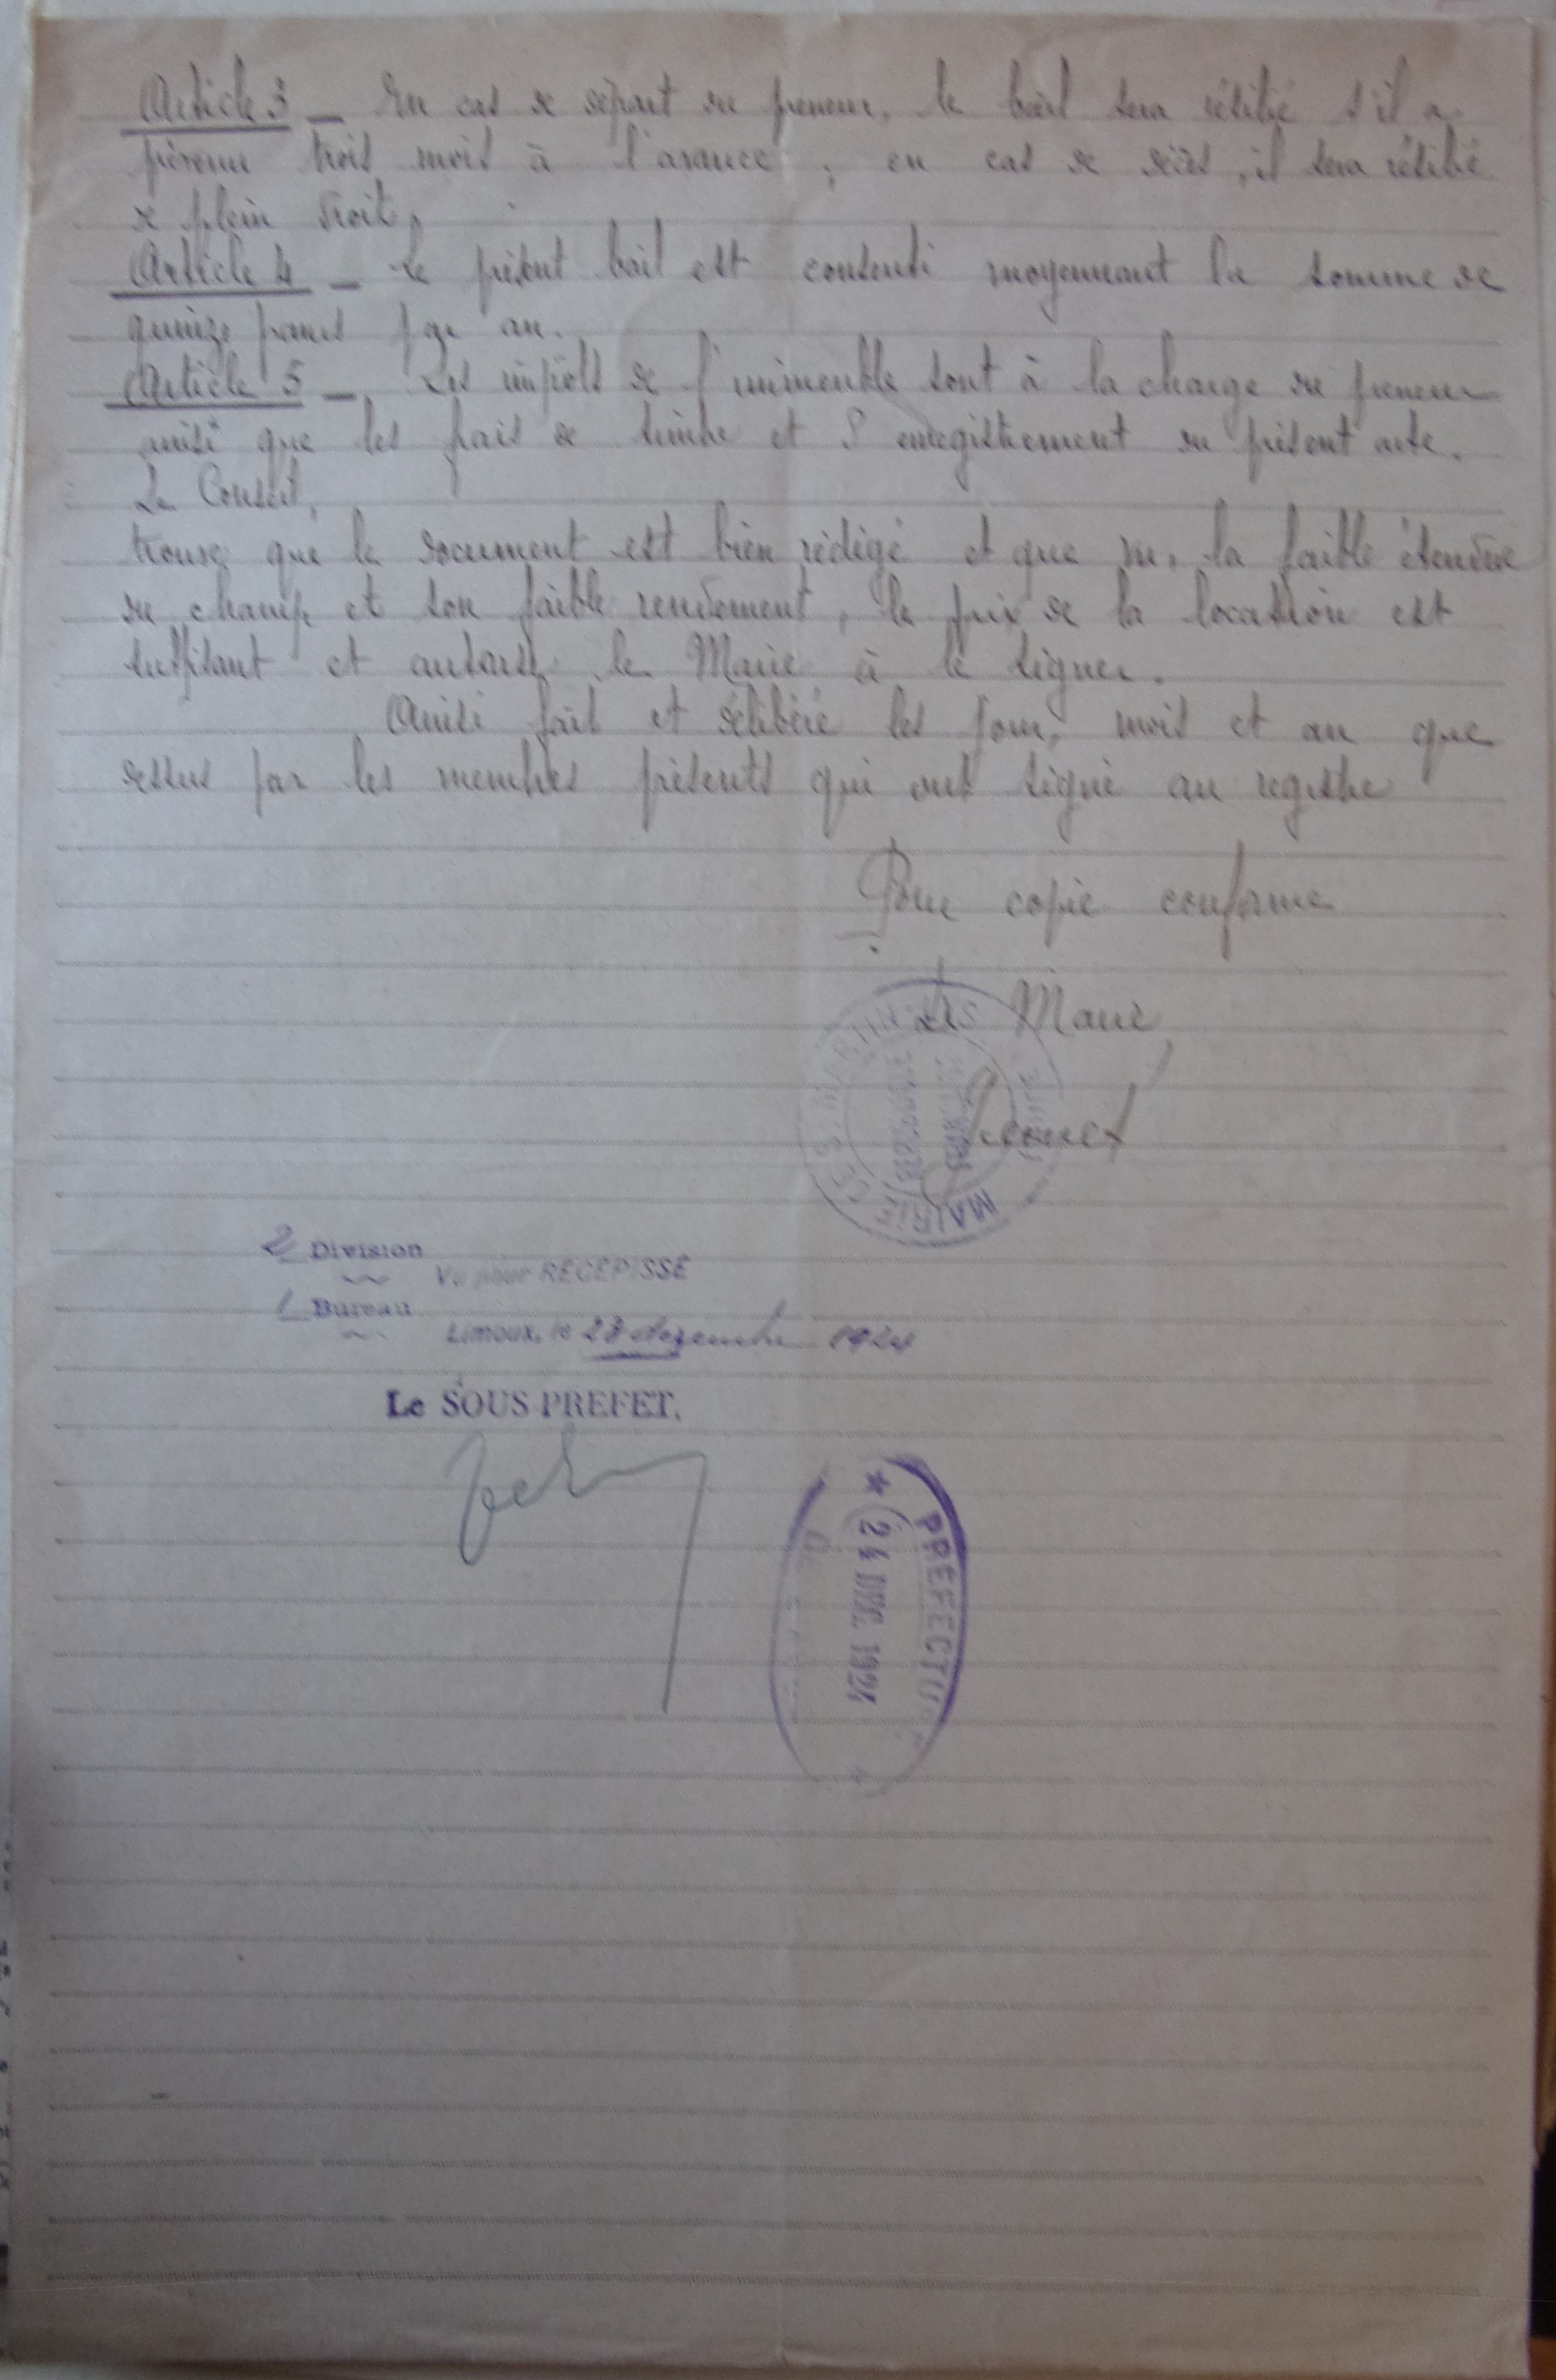 Article 3 _ En cas de départ du preneur, le bail sera résilié s'il a
prévenu trois mois à l'avance ; en cas de décès, il sera résilié
de plein droit.
Article 4 _ Le présent bail est consenti moyennant la somme de
quinze francs par an.
Article 5 _ Les impôts de l'immeuble sont à la charge du preneur
ainsi que les frais de timbre et d'enregistrement du présent acte.
Le Conseil,
trouve que le document est bien rédigé et que vu, la faible étendue
du champ et son faible rendement, le prix de la location est
suffisant et autorise le Maire à le signer.
Ainsi fait et délibéré les jour, mois et an que
dessus par les membres présents qui ont signé au registre
Pour copie conforme
Le Maire,
MAIRIE
2 Division
Vu pour RECEPISSE
1 Bureau
Limoux, le 23 décembre 1924
Le SOUS-PREFET,
PREFECTURE
24 DEC. 1924